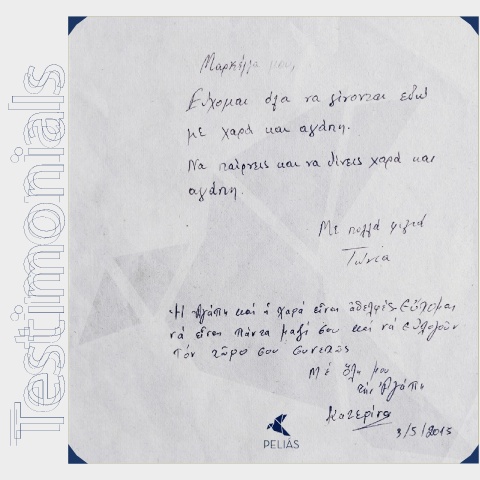 Testimonials
Μαρκέλλα μου,
Εύχομαι όλα να γίνονται εδώ
με χαρά και αγάπη.
Να παίρνεις και να δίνεις χαρά και
αγάπη.
Με πολλά φιλιά
Τώνια
Ἡ Ἀγάπη καί ἡ Χαρά εἶναι ἀδελφές. Εὔχομαι
νά εἶναι πάντα μαζί σου καί νά εὐλογοῦν
τόν χῶρο σου συνεχῶς
Μέ ὅλη μου
τήν Ἀγάπη
Κατερίνα
3/5/2015
PELIÁS